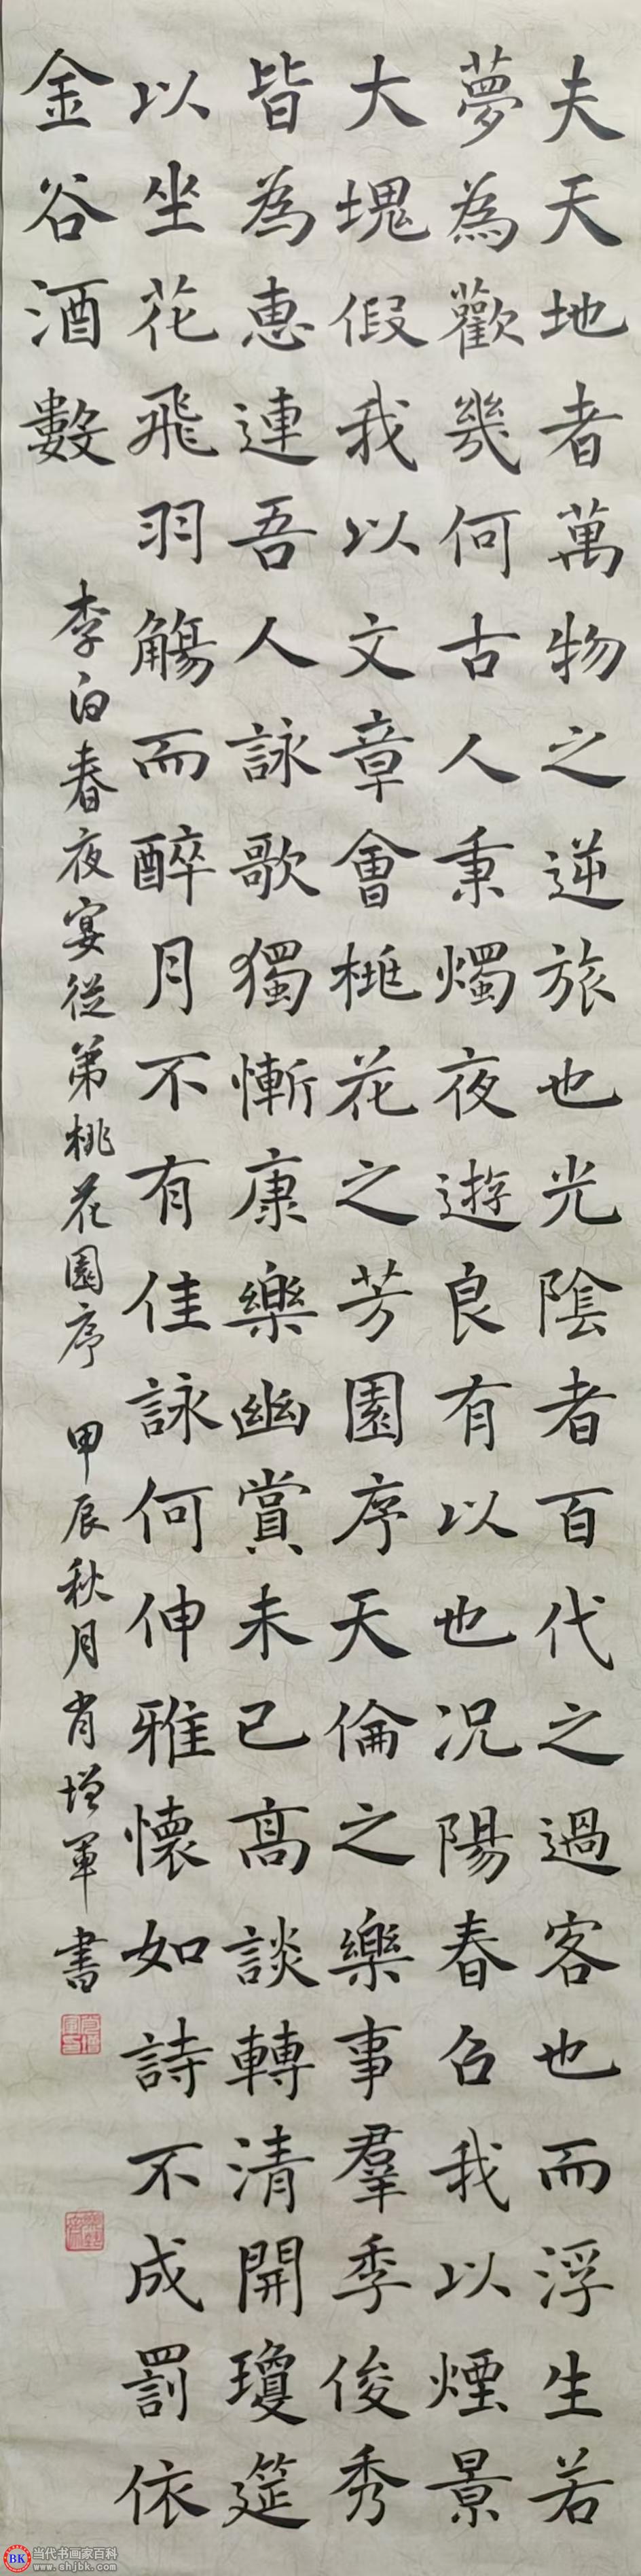 夫天地者萬物之逆旅也光陰者百代之過客也而浮生若
夢為歡幾何古人秉燭夜遊良有以也況陽春召我以煙景
大塊假我以文章會桃花之芳園序天倫之樂事羣季俊秀
皆為惠連吾人詠歌獨慚康樂幽賞未已高談轉清開瓊筵
以坐花飛羽觴而醉月不有佳詠何伸雅懷如詩不成罰依
金谷酒數
李白春夜宴從弟桃花園序 甲辰秋月肖增軍書
BK 当代书画家百科
www.shjbk.com